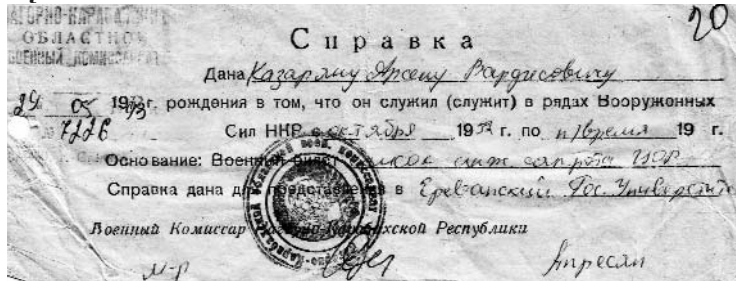 НАГОРНО-КАРАБАХСКИЙ
ОБЛАСТНОЙ
ВОЕННЫЙ КОМИССАРИАТ
20
Справка
Дана Казаряну Арсену Вардгесовичу
29 05 1993г. рождения в том, что он служил (служит) в рядах Вооруженных
№ 7226 Сил НКР с октября 1992 г. по н/время 19 г.
Основание: Военный билет список
Справка дана для представления в Ереванский Гос. Университет
Военный Комиссар Нагорно-Карабахской Республики
м-р Апресян